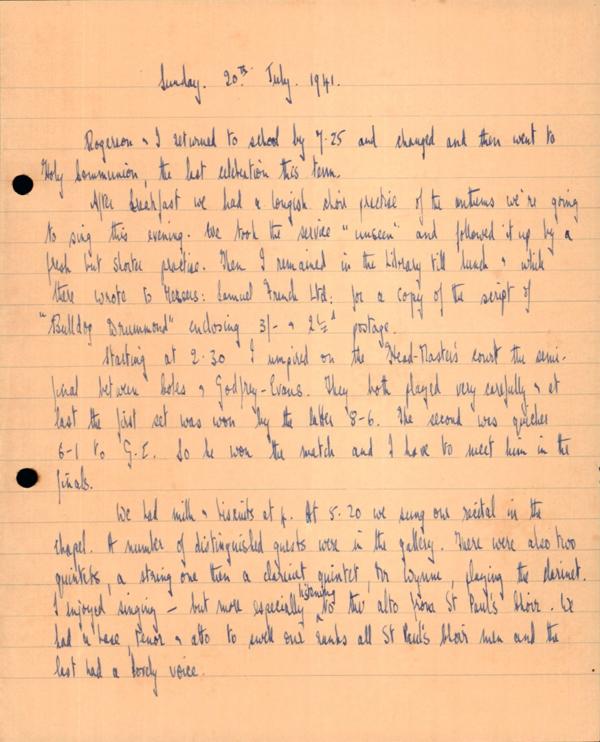 Sunday. 20th July. 1941.
Rogerson & I returned to school by 7.25 and changed and then went to
Holy Communion, the last celebration this term.
After breakfast we had a longish choir practice of the anthems we're going
to sing this evening. We took the service "unseen" and followed it up by a
fresh but shorter practice. Then I remained in the Library till lunch & while
there wrote to Messers: Samuel French Ltd: for a copy of the script of
"Bulldog Drummond" enclosing 3/- & 2½d postage.
Starting at 2.30 I umpired on the Head-Master's court the semi-
final between Coles & Godfrey-Evans. They both played very carefully & at
last the first set was won by the latter 8-6. The second was quicker
6-1 to G.E. So he won the match and I have to meet him in the
finals.
We had milk & biscuits at 4. At 5.20 we sung our recital in the
chapel. A number of distinguished guests were in the gallery. There were also two
quintets, a string one then a clarinet quintet, Mr Wynne, playing the clarinet.
I enjoyed singing – but more especially listening to the alto from St Paul's Choir. We
had a base, tenor & alto to swell our ranks all St Paul's Choir men and the
last had a lovely voice.